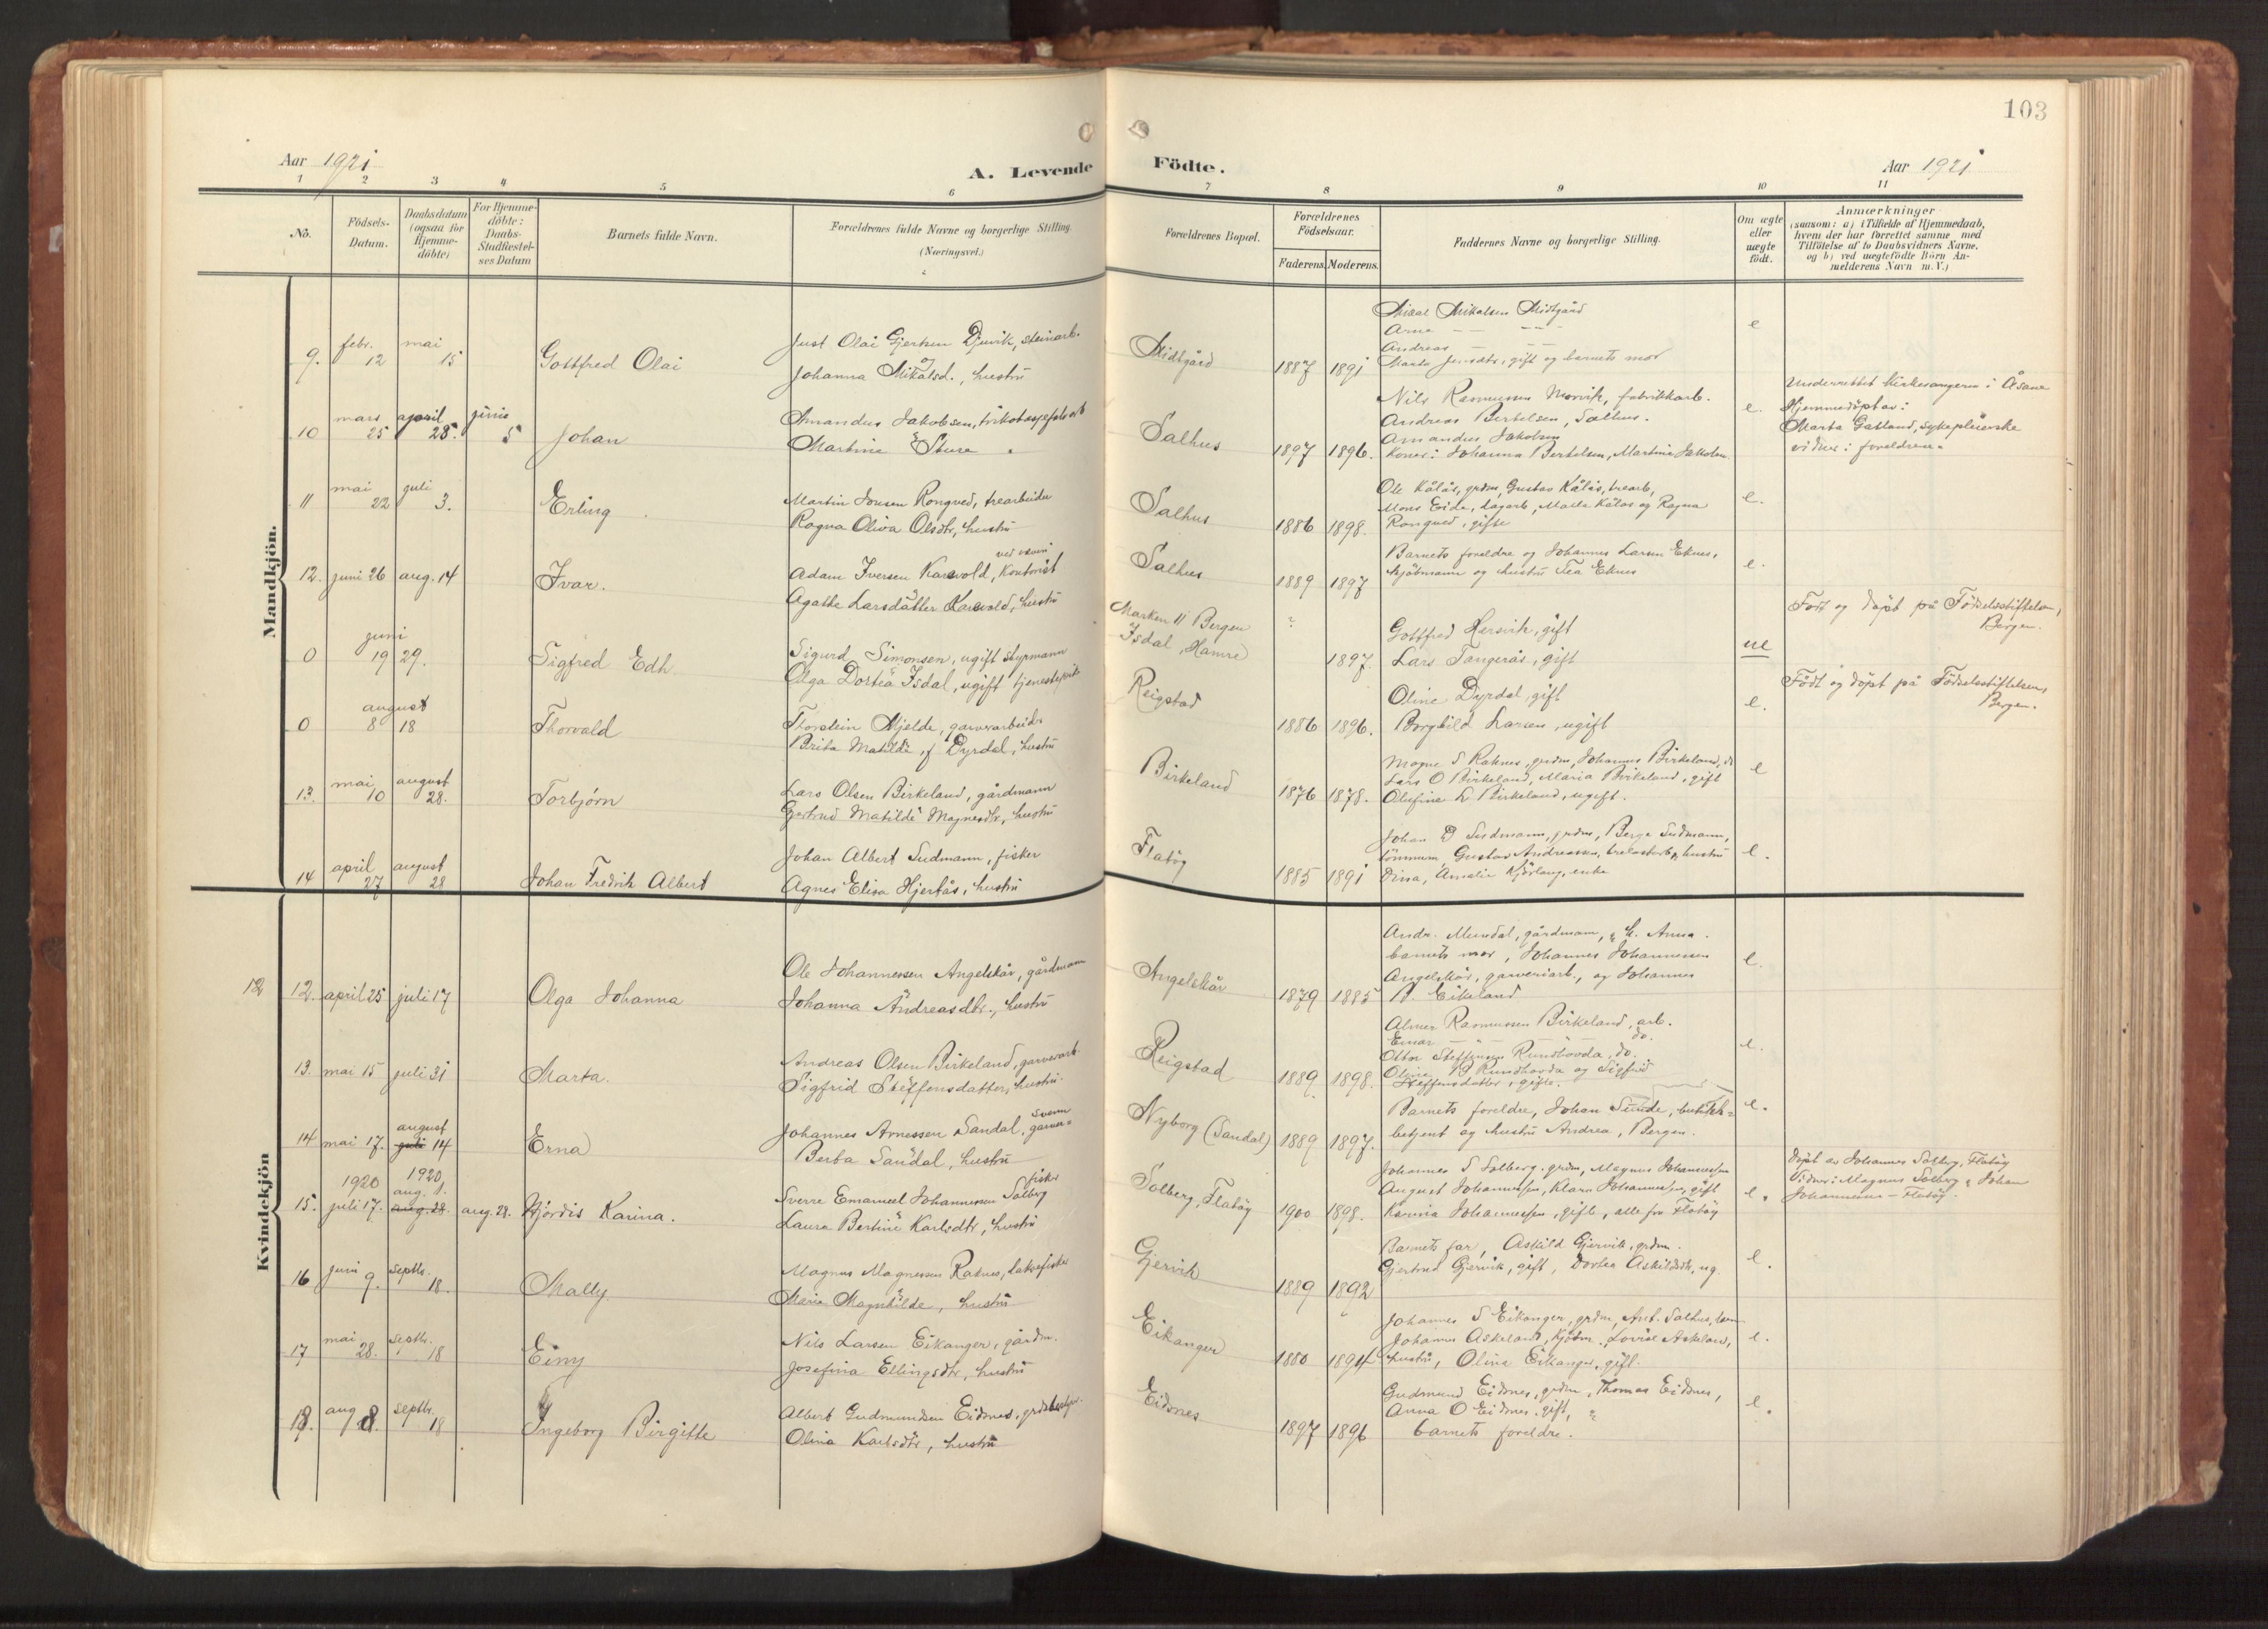 103
Aar 1921
A. Levende Födte.
Aar 1921
1 2 3 4 5 6 7 8 9 10 11
No.
Födsels-
Datum.
Daabsdatum
(ogsaa for
Hjemme-
döbte)
For Hjemme-
döbte:
Daabs-
Stadfæstel-
ses Datum
Barnets fulde Navn.
Forældrenes fulde Navne og borgerlige Stilling.
(Næringsvei.)
Forældrenes Bopæl.
Forældrenes
Födselsaar.
Faderens. Moderens.
Faddernes Navne og borgerlige Stilling.
Om ægte
eller
uægte
født.
Anmærkninger
(saasom: a) i Tilfælde af Hjemmedaab,
hvem der har forrettet samme med
Tilföielse af to Daabsvidners Navne.
og b) ved uægtefödte Börn An-
melderens Navn m. V.)
Mandkjön.
9. febr. 12 mai 15 Gottfred Olai
Just Olai Gjertsen Djuvik, steinarb.
og
Johanna Mikalsd., hustru
Midtgård 1887 1891
Mikal Mikalsen Midtgård
Arne — — — —
Andreas — — —
Marta Jensdtr, gift og barnets mor
e
10 mars 25 april 28. juni 5 Johan
Amandus Jakobsen,
Martine Sture
Salhus 1897 1896.
Nils Rasmussen Morvik, fabrikkarb.
Andreas Bertelsen, Salhus.
Amandus Jakobsen
Koner: Johanna Bertelsen, Martine Jakobsen.
e.
Underrettet kirkesangeren i Åsane
Hjemmedöpt av:
Marta Gatland, sykepleierske
vidner: foreldrene
11 mai 22 juli 3. Erling
Martin Jonsen Rongved, trearbeider
Ragna Oliva Olsdtr, hustru
Salhus 1886 1898.
Ole Kålås, grdm, Gustav Kålås, trearb,
Mons Eide, dagarb, Marta Kålås og Ragna
Rongved, gifte
e.
12. juni 26 aug. 14 Ivar.
Adam Iversen Karsvold, kontorist
Agathe Larsdatter Karsvold, hustru
Salhus 1889 1897
Barnets foreldre og Johannes Larsen Eknes,
kjöbmann og hustru Tea Eknes
e.
0 juni 19 29. Sigfred Edh
Sigurd Simonsen, ugift styrmann
Olga Dortea Isdal, ugift tjenestepike
Marken 11 Bergen
Isdal, Hamre
? 1897.
Gottfred Hersvik, gift
Lars Tangerås, gift
ue
Født og døpt på Fødselsstiftelsen,
Bergen.
0 august 8 18 Thorvald
Thorstein Hjelde, garverarbeider
Brita Matilde, f Dyrdal, hustru
Reigstad 1886 1896.
Oline Dyrdal, gift
Borghild Larsen, ugift
e.
Födt og döpt på Fødselsstiftelsen,
Bergen.
13. mai 10 august 28. Torbjørn
Lars Olsen Birkeland, gårdmann
Gertrud Matilde Magnesdtr, hustru
Birkeland 1876 1878.
Magne S Raknes, grdm, Johannes Birkeland, do
Lars O Birkeland, Maria Birkeland, gift
Olufine L Birkeland, ugift.
e
14 april 27 august 28 Johan Fredrik Albert
Johan Albert Sudmann, fisker
Agnes Elisa Hjertås, hustru
Flatöy 1885 1891
Johan D Sudmann, grdm, Berge Sudmann,
Gustav Andreassen, hustru
Dina, Amalie enke
e.
Kvindekjön
12 12. april 25 juli 17 Olga Johanna
Ole Johannessen Angelskår, gårdmann
Johanna Andreasdtr., hustru
Angelskår 1879 1885
Andr. Mundal, gårdmann, h. Anna.
barnets mor, Johannes Johannessen
Angelskår, garveriarb., og Johannes
Eikeland
e.
13. mai 15 juli 31 Marta.
Andreas Olsen Birkeland, garverarb
Sigfrid Steffensdatter, hustru
Reigstad 1889 1898.
Almer Rasmussen Birkeland, arb.
Einar — " — — do.
Ottar Steffensen Rundhovda, do.
Oline B Rundhovda og Sigfrid
Steffensdatter, gifte.
e.
14 mai 17. august juli 14 Erna
Johannes Arnessen Sandal, garver-
svenn
Berta Sandal, hustru
Nyborg (Sandal) 1889 1897.
Barnets foreldre, Johan Sunde, butikk-
betjent og hustru Andrea, Bergen.
e.
15. 1920 juli 17. 1920 aug. 1. aug. 28. aug. 28. Hjördis Karina.
Sverre Emanuel Johannessen Solberg
fisker
Laura Bertine Karlsdtr, hustru
Solberg, Flatöy 1900 1898.
Johannes S Solberg, grdm, Magnus Johannessen
August Johannessen, Klara Johannessen, gift
Karina Johannessen, gifte, alle fra Flatöy
e.
Döpt av Johannes Solberg, Flatöy
Vidner: Magnus Solberg, Johan
Johannessen - Flatöy.
16 juni 9. septbr. 18. Mally.
Magnus Magnessen Raknes, laksefisker
Marie Magnhilde, hustru
Gjervik 1889 1892
Barnets far, Askild Gjervik, grdm.
Gjertrud Gjervik, gift, Dortea Askildsdtr, ug.
e.
17 mai 28. septbr. 18 Einy
Nils Larsen Eikanger, gårdm.
Josefina Ellingsdtr, hustru
Eikanger 1880 1894
Johannes S Eikanger, grdm, Ant. Salhus,
Johannes Askeland, kjöbm. Lovise Askeland,
hustru, Olina Eikanger, gift.
e.
18. aug 8. septbr. 18 Ingeborg Birgitte
Albert Gudmundsen Eidsnes,
Olina Karlsdtr, hustru
Eidsnes 1897 1896
Gudmund Eidsnes, grdm, Thomas Eidsnes,
Anna O Eidsnes, gift,
barnets foreldre.
e.